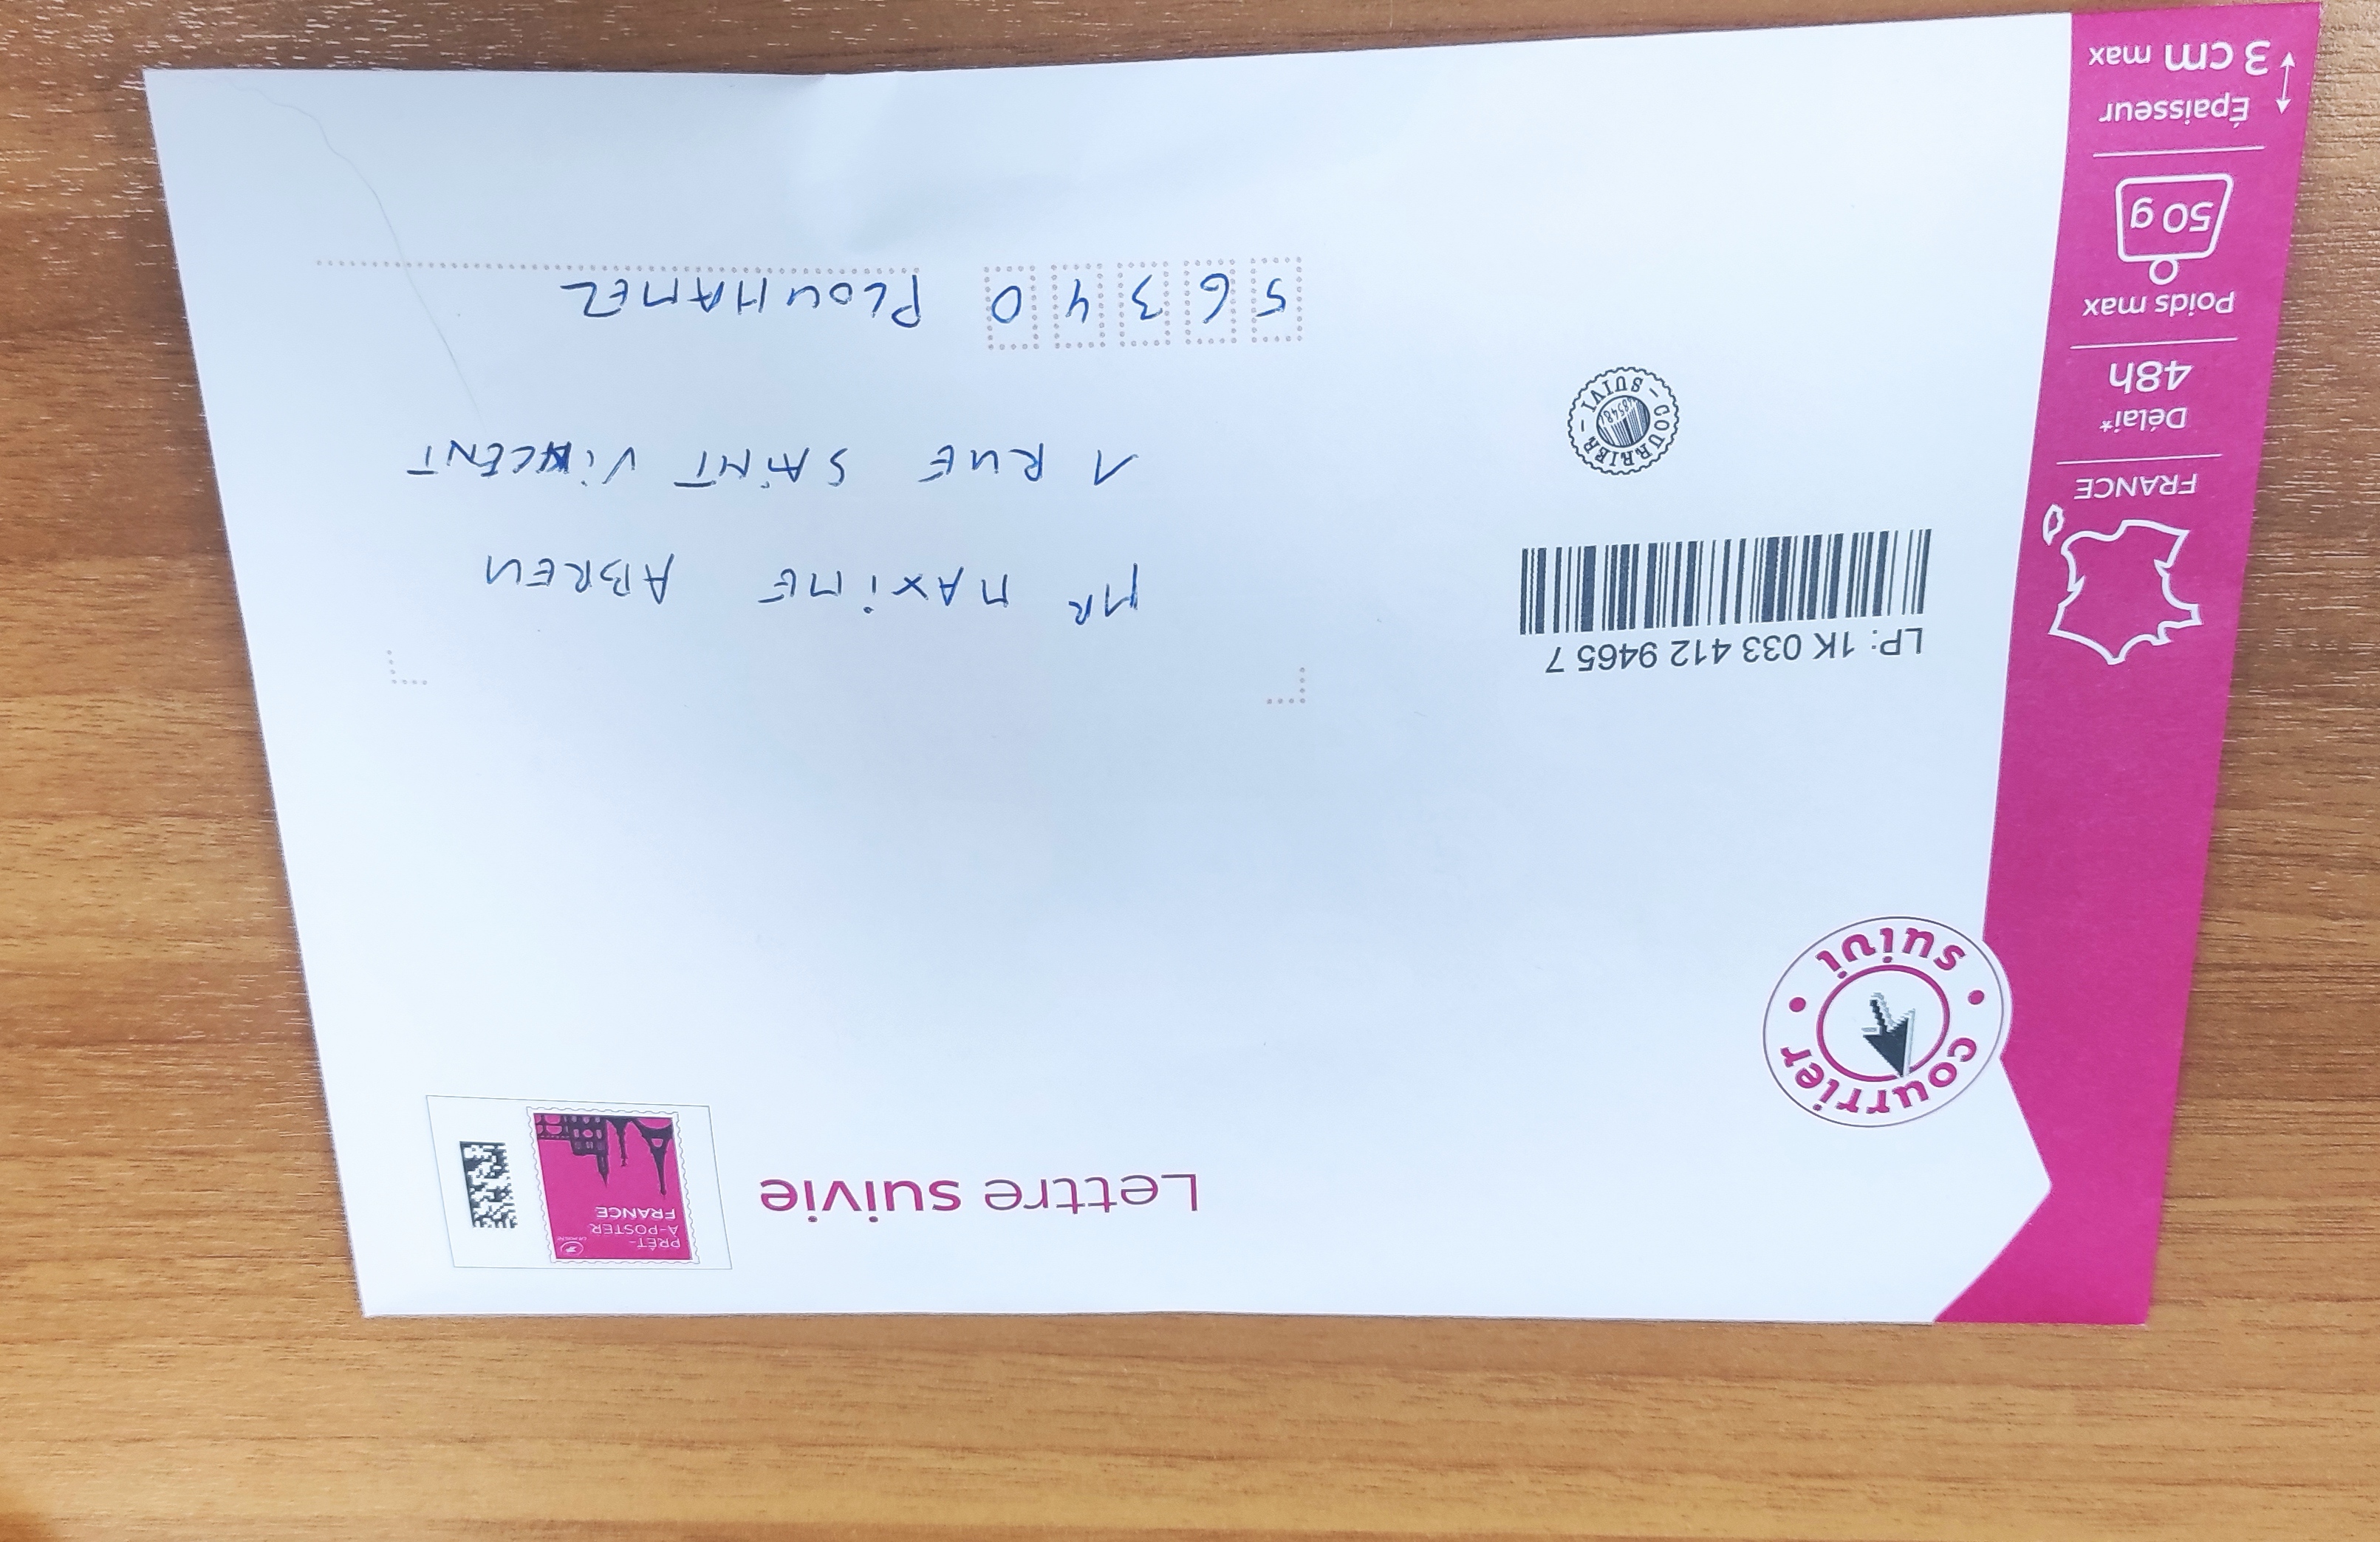 Lettre suivie
PRÊT-
À-POSTER
FRANCE
courrier • suivi •
FRANCE
Délai*
48h
Poids max
50 g
Épaisseur
3 cm max
LP: 1K 033 412 9465 7
COURRIER – SUIVI –
MR MAXIME ABREU
1 RUE SAINT VINCENT
56340 PLOUHAMEL